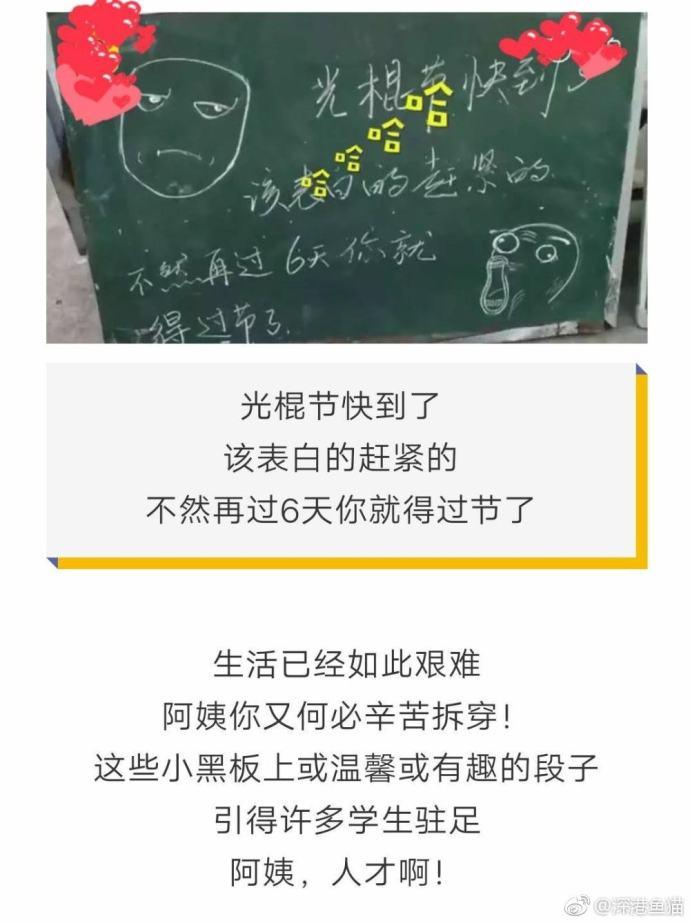 光棍节快到了
哈
哈
哈
哈
该表白的赶紧的
不然再过6天你就
得过节了
光棍节快到了
该表白的赶紧的
不然再过6天你就得过节了
生活已经如此艰难
阿姨你又何必辛苦拆穿！
这些小黑板上或温馨或有趣的段子
引得许多学生驻足
阿姨，人才啊！
@深港鱼猫